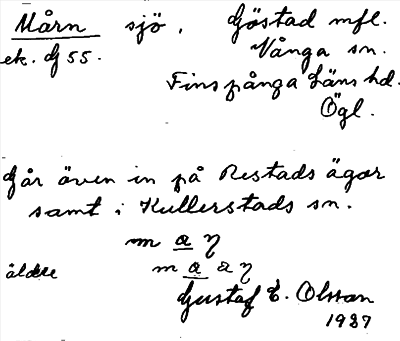 Mårn sjö. Göstad mfl.
ek. G 55. Vånga sn.
Finspånga läns hd.
Ögl.
Går även in på Restads ägor
samt i Kullerstads sn.
m a η
äldre m a a η
Gustaf E. Olsson
1937